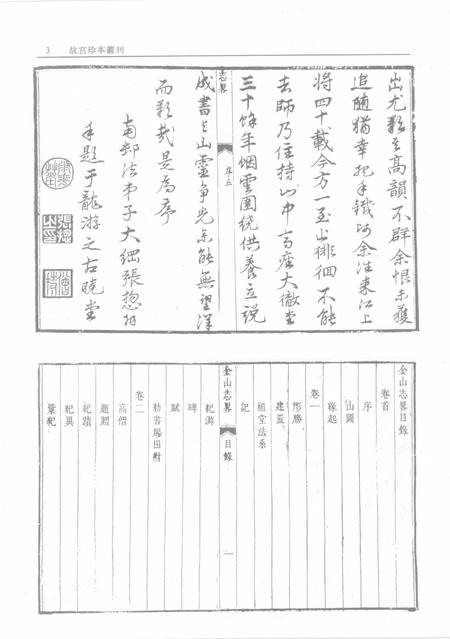 3 故宮珍本叢刊
出尤稱至高韻不群余恨未獲
追隨猶幸把手鐵
將四十載今方一至山徘徊不能
去師乃住持山中高座大徹堂
三十餘年烟雲圍繞供養立説
志畧
序五
成書與山靈爭光余能無望洋
而歎哉是為序
南邨法弟子大綱張
手題于龍游之古曉堂
金山志畧目錄
卷首
序
山圖
緣起
卷一
形勝
建置
祖堂法系
記
金山志畧
目錄
一
紀游
碑
賦
勅書賜田附
卷二
高僧
題贈
紀蹟
紀異
叢紀